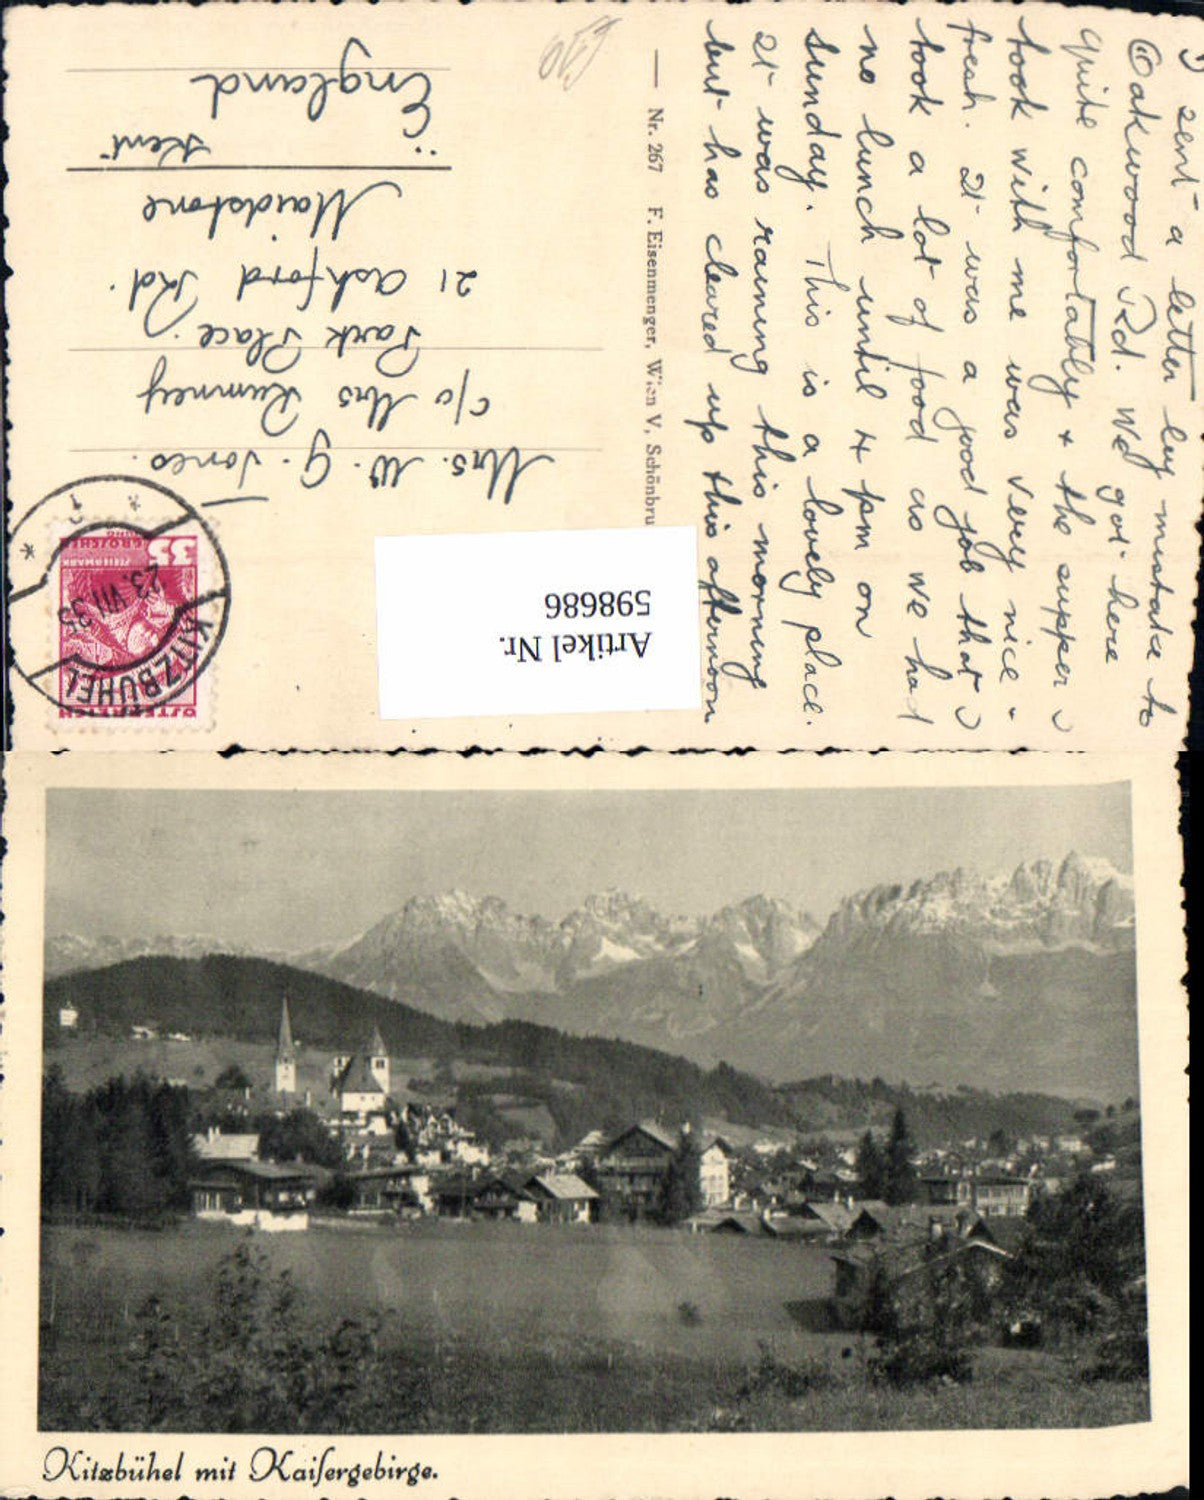 I sent a letter by mistake to
Oakwood Rd. We got here
quite comfortably & the supper I
took with me was very nice &
fresh. It was a good job that I
took a lot of food as we had
no lunch until 4 pm on
Sunday. This is a lovely place.
It was raining this morning
but has cleared up this afternoon
Nr. 267 F. Eisenmenger, Wien V, Schönbru
Mrs. W. G. Jones.
c/o Mrs Rumney
Park Place.
21 Ashford Rd.
Maidstone
Kent
England
35
GROSCHEN
STEIERMARK
ÖSTERREICH
KITZBÜHEL
23. VII. 35
Artikel Nr.
598686
Kitzbühel mit Kaisergebirge.